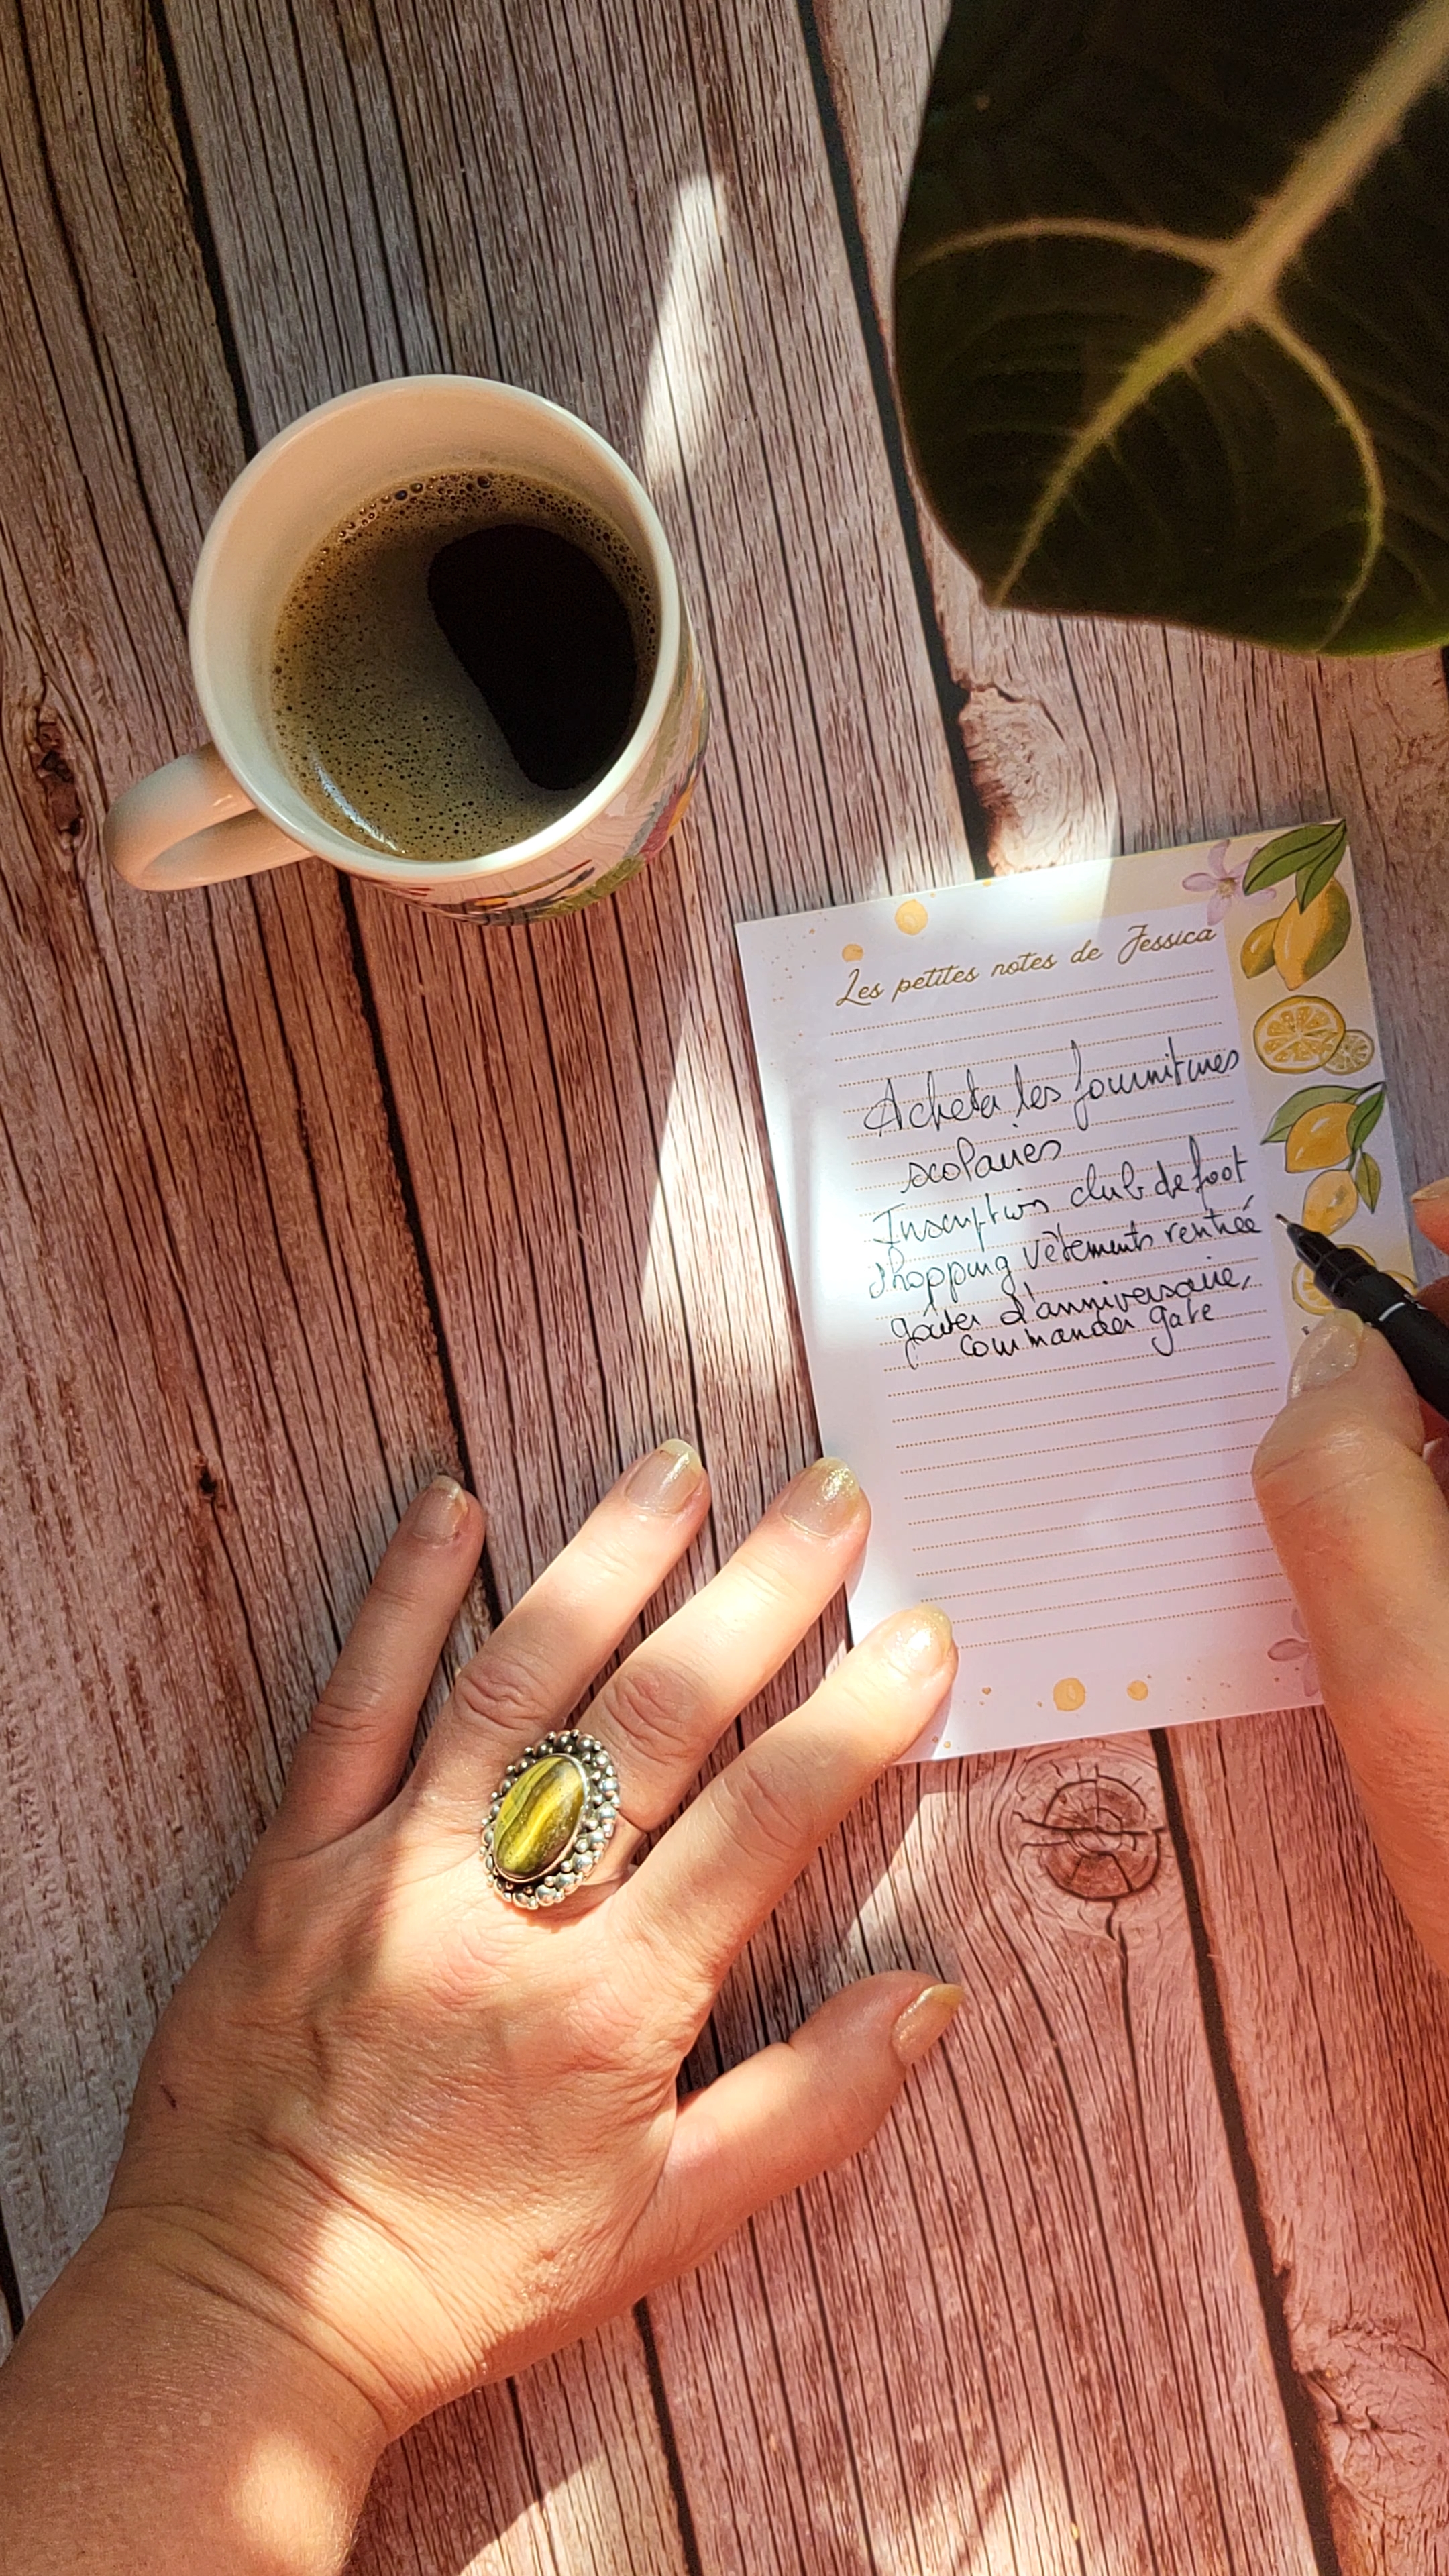 Les petites notes de Jessica
Acheter les fournitures
scolaires
Inscription club de foot
shopping vêtements rentrée
goûter d'anniversaire,
commander gate